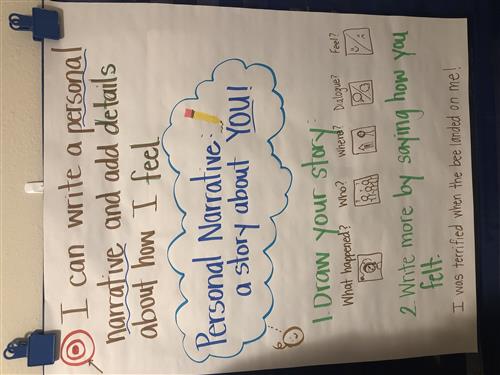 I can write a personal
narrative and add details
about how I feel
Personal Narrative:
a story about YOU!
1. Draw your story:
What happened? Who? Where? Dialogue? Feel?
2. Write more by saying how you
felt.
I was terrified when the bee landed on me!